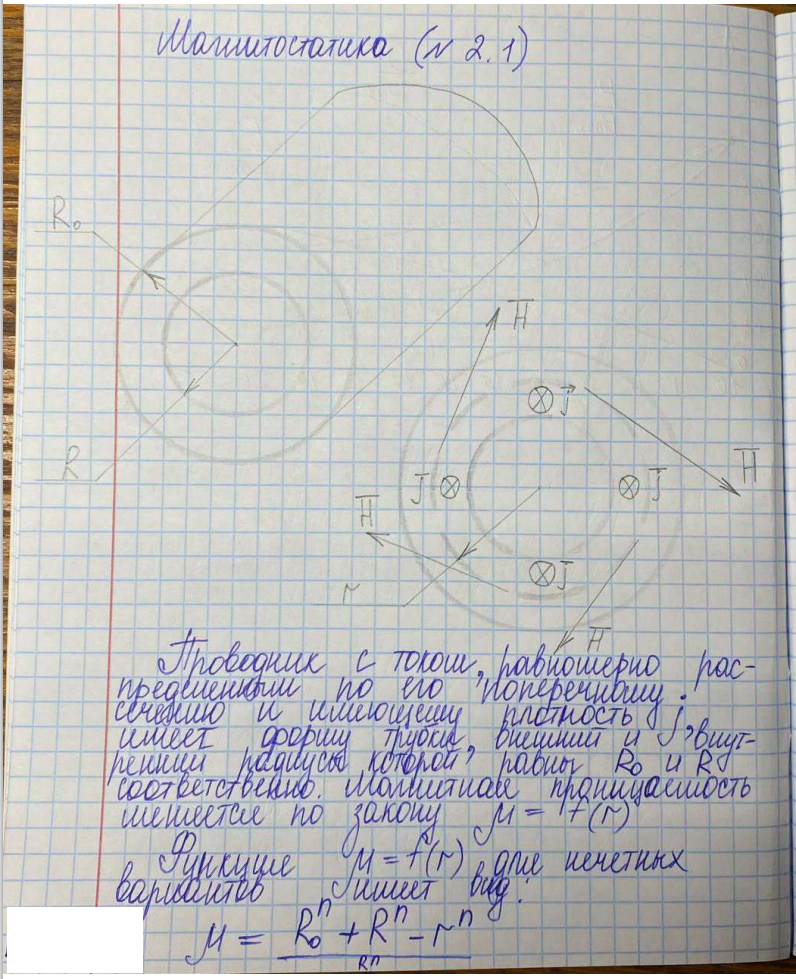 Магнитостатика (№ 2.1)
R₀
H̅
j⃗
H̅
R
j̅
j̅
H̅
j̅
r
H̅
Проводник с током, равномерно рас-
пределенным по его поперечному
сечению и имеющему плотность j,
имеет форму трубки, внешний и внут-
ренний радиусы которой равны R₀ и R
соответственно. Магнитная проницаемость
меняется по закону μ = f(r)
Функция μ = f(r) для нечетных
вариантов имеет вид:
μ = (R₀ⁿ + Rⁿ - rⁿ) / Rⁿ